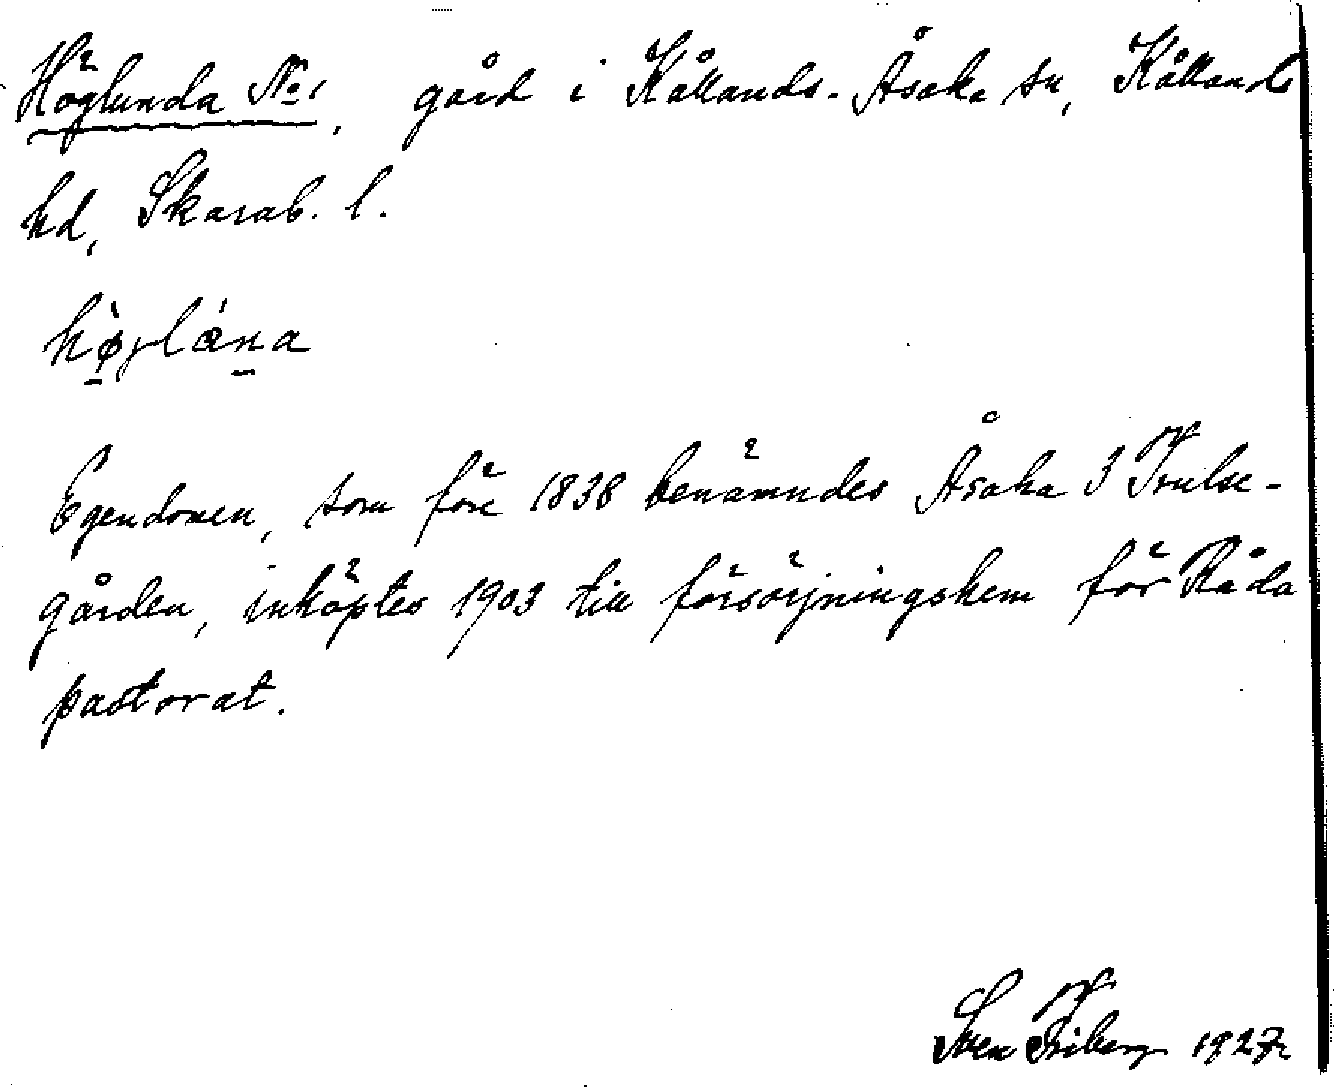 Höglunda No 1, gård i Kållands-Åsaka sn, Kållands
hd, Skarab. l.
hø̀glána
Egendomen, som före 1838 benämndes Åsaka 3 Trulse-
gården, inköptes 1903 till försörjningshem för Råda
pastorat.
Sven Friberg 1927